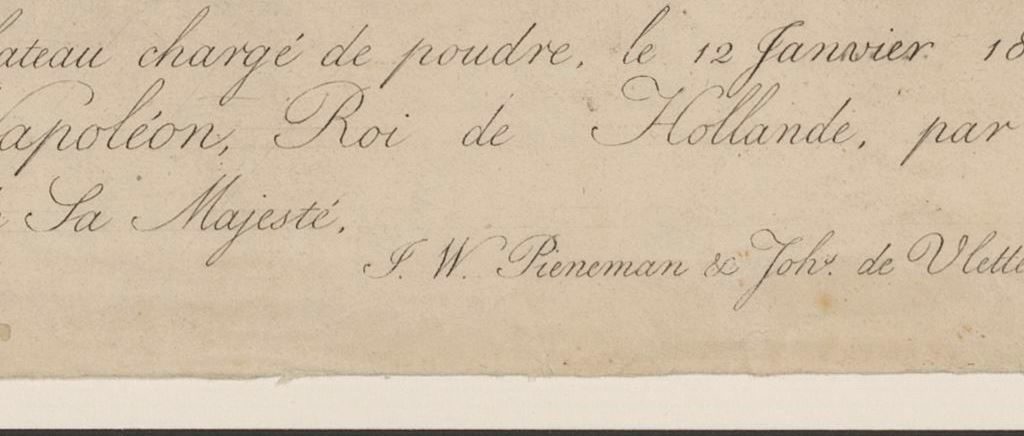 chargé de poudre, le 12 Janvier
Napoléon, Roi de Hollande, par
Sa Majesté.
J. W. Pieneman & Johs. de